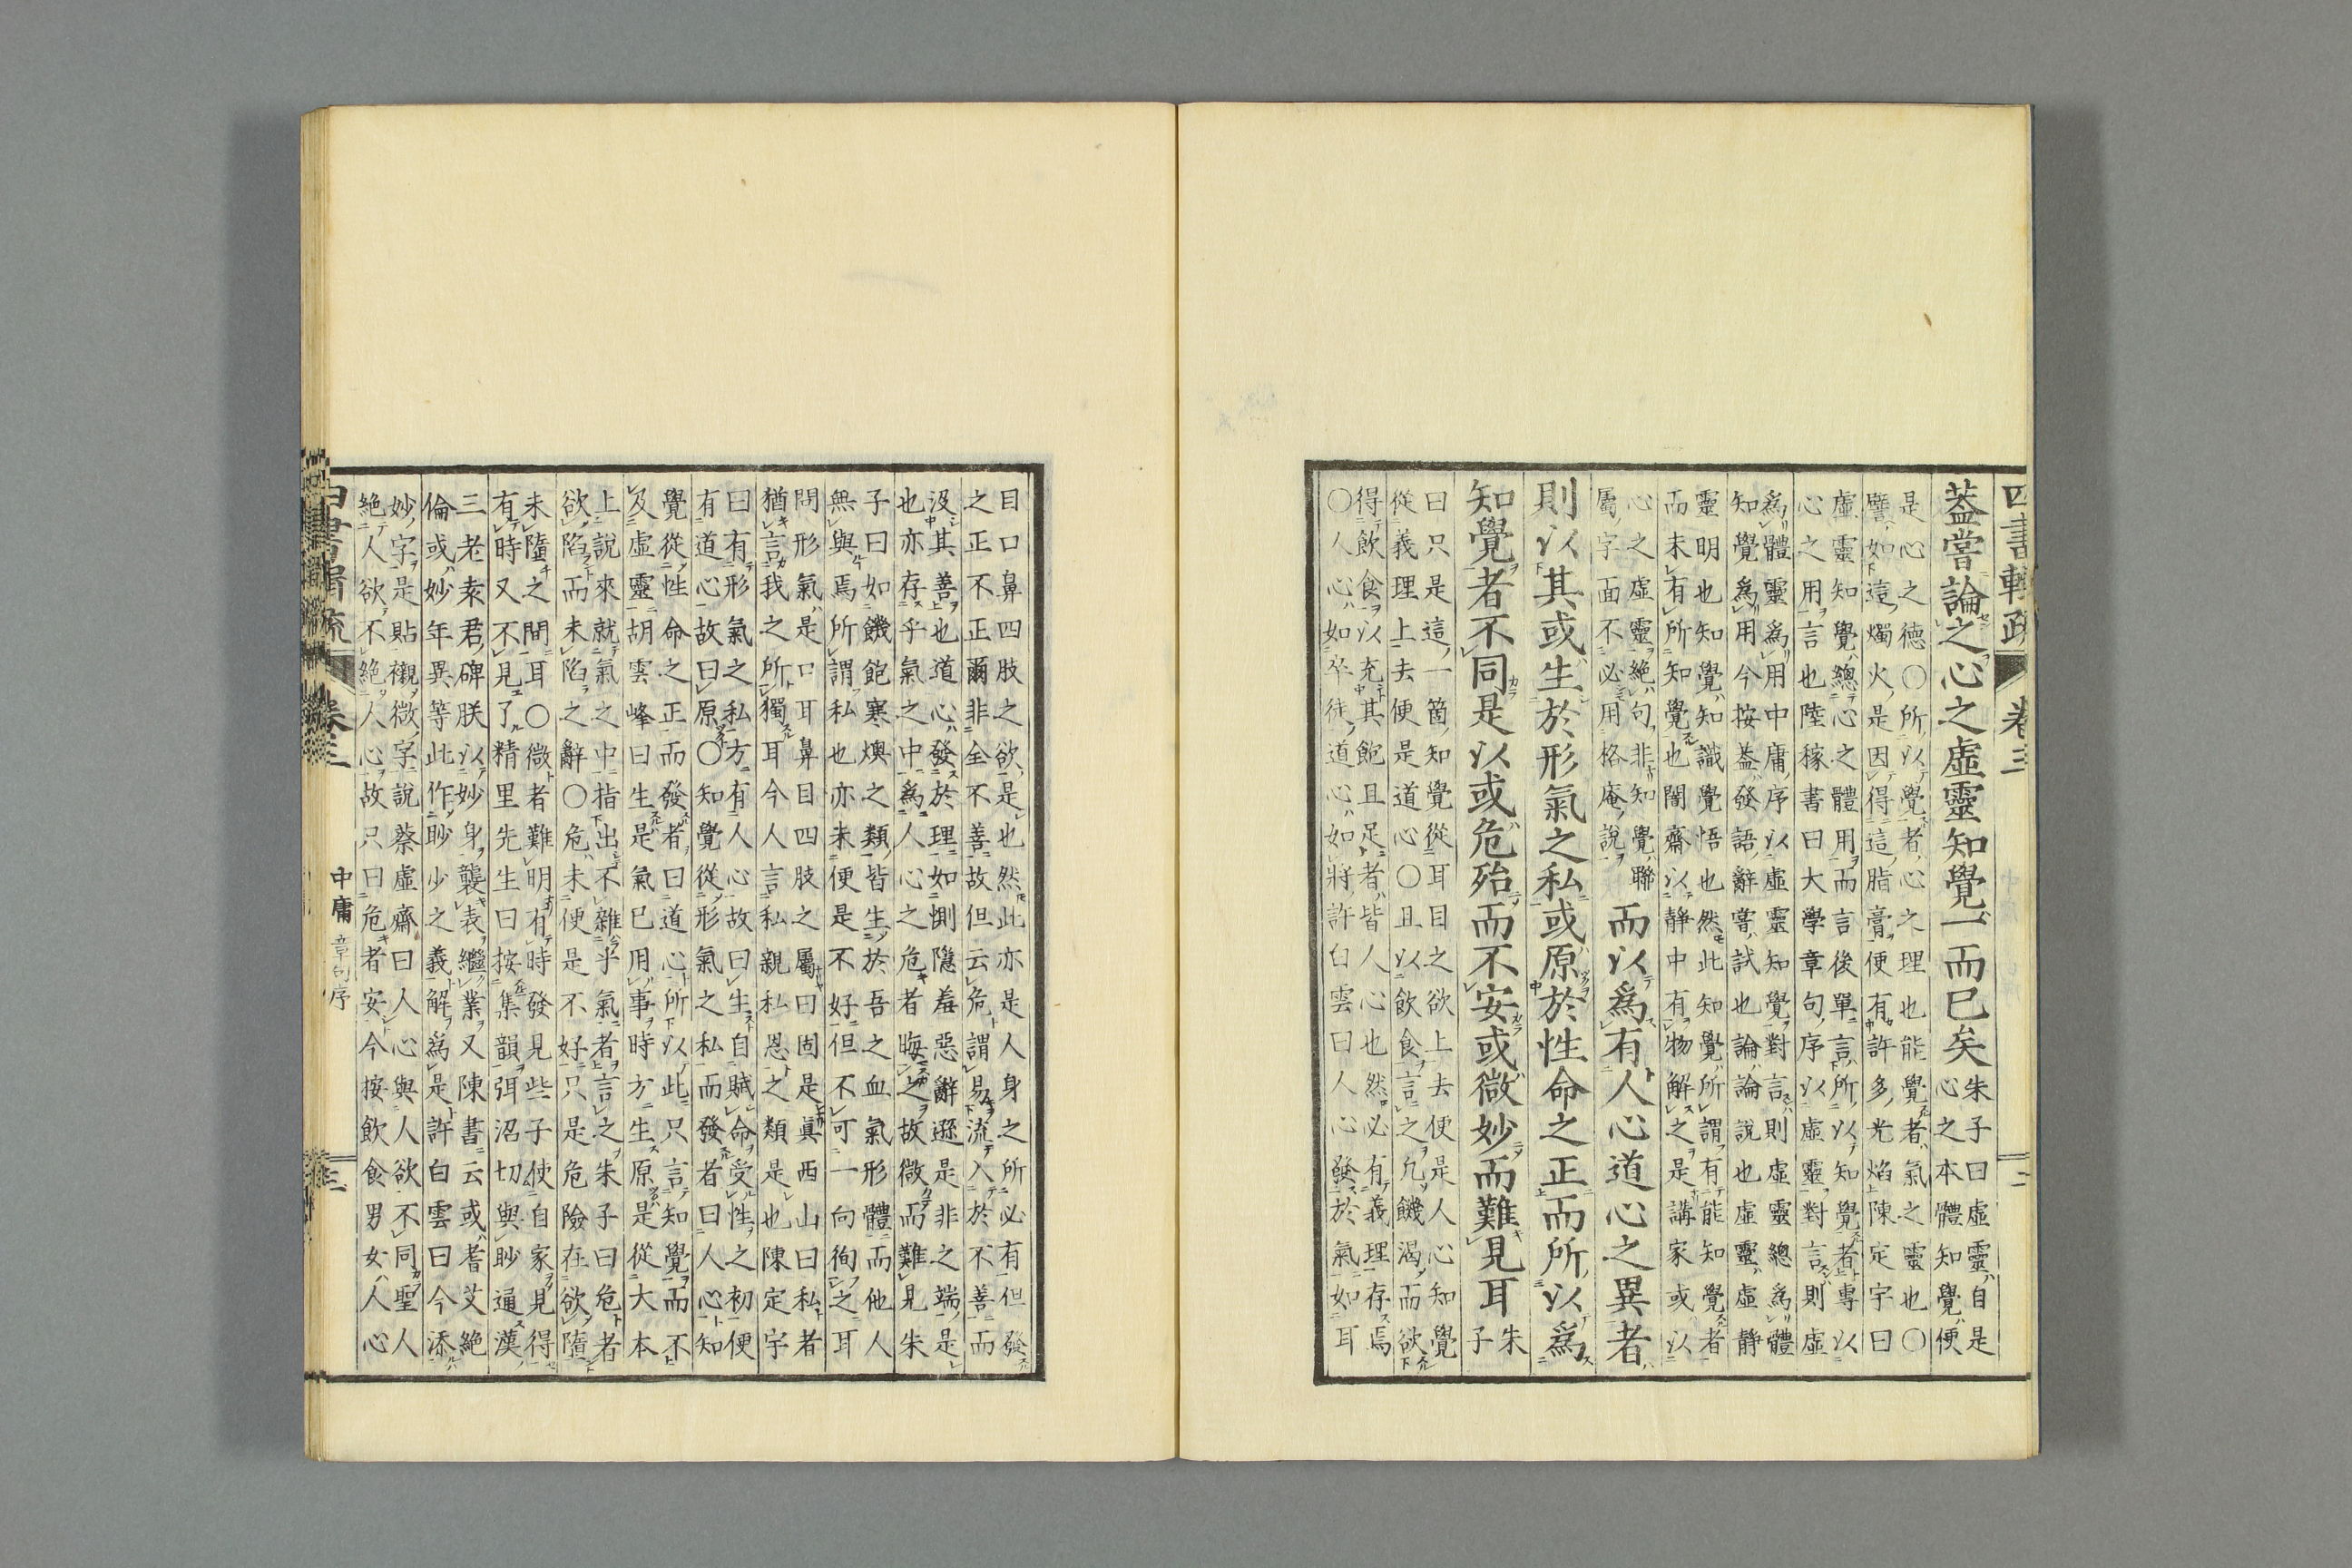 四書輯疏 卷三 二
蓋嘗論之心之虛靈知覺一而已矣
朱子曰虛靈自是
心之本體知覺便
是心之德〇所以覺者心之理也能覺者氣之靈也〇
譬如這燭火是因得這脂膏便有許多光焰陳定宇曰
虛靈知覺總心之體用而言後單言所以知覺者專以
心之用言也陸稼書曰大學章句序以虛靈對言則虛
爲體靈爲用中庸序以虛靈知覺對言則虛靈總爲體
知覺爲用今按蓋發語辭嘗試也論論說也虛靈虛靜
靈明也知覺知識覺悟也然此知覺所謂有能知覺者
而未有所知覺也闇齋以靜中有物解之是講家或以
心之虛靈絕句非知覺聯
屬字面不必用格庵說
而以爲有人心道心之異者
則以其或生於形氣之私或原於性命之正而所以爲
知覺者不同是以或危殆而不安或微妙而難見耳
朱
子
曰只是這一箇知覺從耳目之欲上去便是人心知覺
從義理上去便是道心〇且以飲食言之凡饑渴而欲
得飲食以充其飽且足者皆人心也然必有義理存焉
〇人心如卒徒道心如將許白雲曰人心發於氣如耳
目口鼻四肢之欲是也然此亦是人身之所必有但發
之正不正爾非全不善故但云危謂易流入於不善而
沒其善也道心發於理如惻隱羞惡辭遜是非之端是
也亦存乎氣之中爲人心之危者晦之故微而難見朱
子曰如饑飽寒燠之類皆生於吾之血氣形體而他人
無與焉所謂私也亦未便是不好但不可一向徇之耳
問形氣是口耳鼻目四肢之屬曰固是眞西山曰私者
猶言我之所獨耳今人言私親私恩之類是也陳定宇
曰有形氣之私方有人心故曰生自賦命受性之初便
有道心故曰原〇知覺從形氣之私而發者曰人心知
覺從性命之正而發者曰道心所以此只言知覺而不
及虛靈胡雲峰曰生是氣已用事時方生原是從大本
上說來就氣之中指出不雜乎氣者言之朱子曰危者
欲陷而未陷之辭〇危未便是不好只是危險在欲隨
未隨之間耳〇微者難明有時發見些子使自家見得
有時又不見了精里先生曰按集韻弭沼切與眇通漢
三老袁君碑朕以妙身襲表繼業又陳書云或耆艾絕
倫或妙年異等此作眇少之義解爲是許白雲曰今添
妙字是貼襯微字說蔡虛齋曰人心與人欲不同聖人
絕人欲不絕人心故只曰危者安今按飲食男女人心
四書輯疏 卷三 中庸 章句序 三